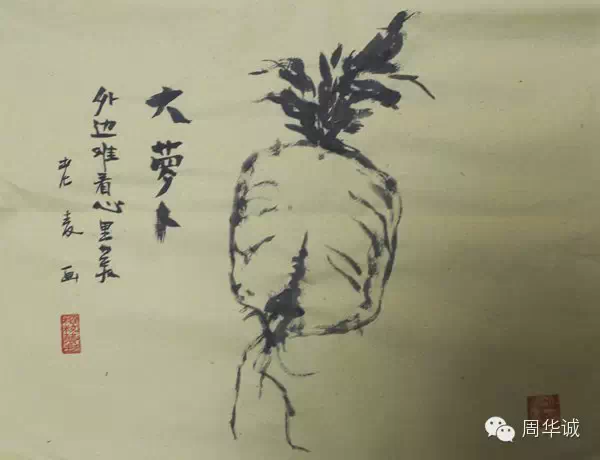 大萝卜
外边难看心里美
老麦画
周华诚